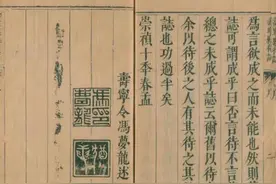 爲言欲成之而未能也然則
誌可謂成乎曰否言待不言
總之未成乎誌云爾舊以待
余以待後之人有其待之其
誌也功過半矣
崇禎十季春孟
壽寧令馮夢龍述